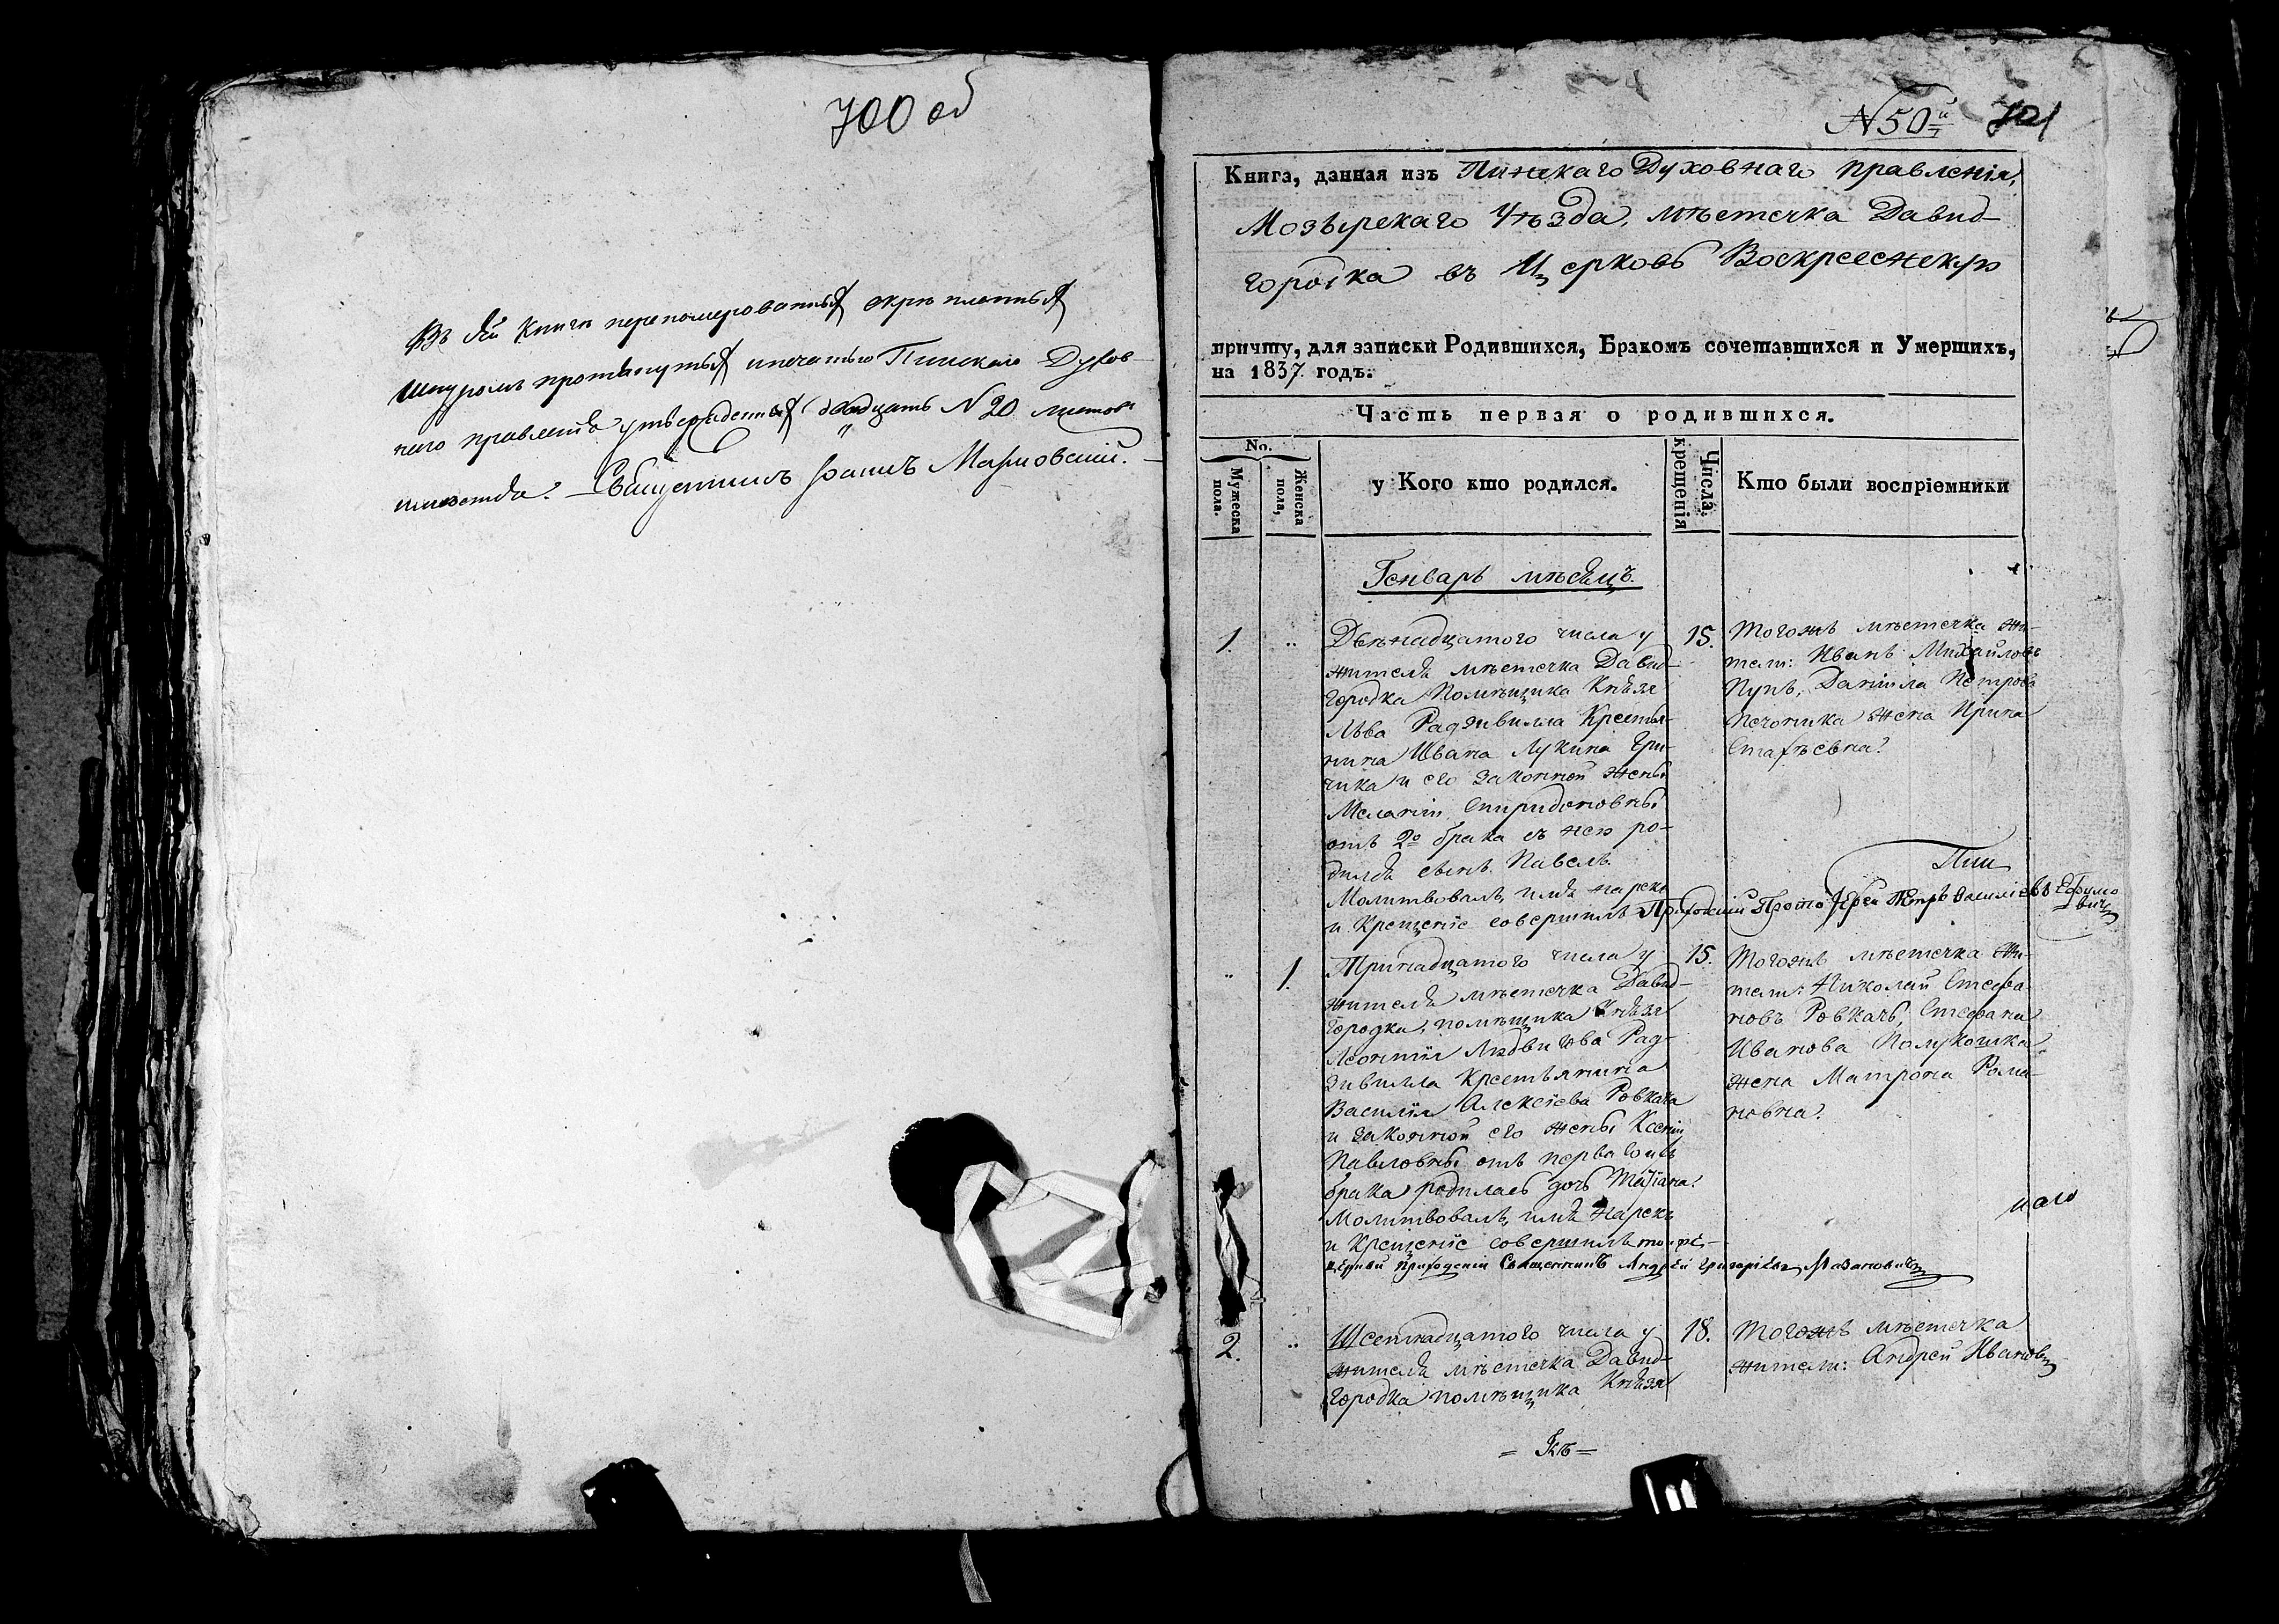 700 об
Въ сей книгѣ перенумерованныхъ скрѣпленныхъ
шнуромъ протянутыхъ и печатью Пинскаго Духов-
наго правленія утвержденныхъ двадцать N 20 листовъ
Священникъ
N 50й 701
Книга, данная изъ Пинскаго Духовнаго Правленія,
Мозырскаго Уѣзда, мѣстечка Давид-
городка въ Церковь Воскресенскую
причту, для записки Родившихся, Бракомъ сочетавшихся и Умершихъ,
на 1837 годъ.
Часть первая о родившихся.
No.
Мужеска пола.
Женска пола,
у Кого кто родился.
Числа крещенія
Кто были воспріемники
Генварь мѣсяцъ.
1. ..
Двѣнадцатого числа у
жителя мѣстечка Давид-
городка Помѣщика Князя
Льва Радзивилла Крестья-
нина Ивана Лукина Гри-
чика и его законной жены
Меланіи Спиридоновны
отъ 2го брака съ нею ро-
дился сынъ Павелъ.
Молитвовалъ, имя нарекъ
и Крещеніе совершилъ Приходскій Протоіерей Петръ Василіевъ
15.
Тогожъ мѣстечка жи-
тели: Иванъ Михайловъ
Пупъ, Даніила Петрова
жена Ирина
.. 1.
Тринадцатого числа у
жителя мѣстечка Давид-
городка, помѣщика Князя
Леонтія Людвикова Рад-
зивилла Крестьянина
Василія Алексіева Ровкача
и законной его жены Ксеніи
Павловны отъ перваго ихъ
брака родилась дочь Татіана.
Молитвовалъ, имя нарекъ
и Крещеніе совершилъ той же
церкви приходскій Священникъ Андрей Григоріевъ Мазановичъ
15.
Тогожъ мѣстечка жи-
тели: Николай Стефа-
новъ Ровкачъ, Стефана
Иванова Полукошка
жена Матрона Рома-
новна.
2. ..
Шестнадцатого числа у
жителя мѣстечка Давид-
городка помѣщика Князя
18.
Тогожъ мѣстечка
жители: Андрей Ивановъ